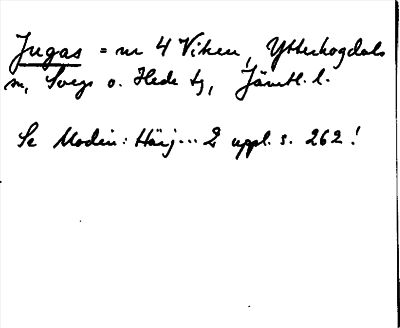 Jugas = nr 4 Viken, Ytterhogdals
sn, Svegs o. Hede tg, Jämtl. l.
Se Modin: Härj... 2 uppl. s. 262!